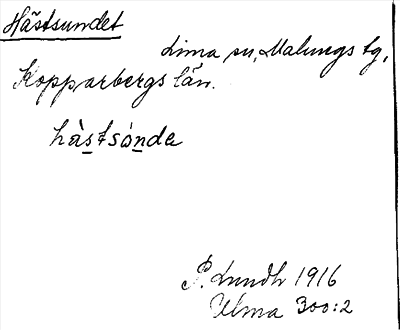 Hästsundet
Lima sn, Malungs tg,
Kopparbergs län.
hàs̲tsón̲de
P. Lundh 1916
Ulma 300:2